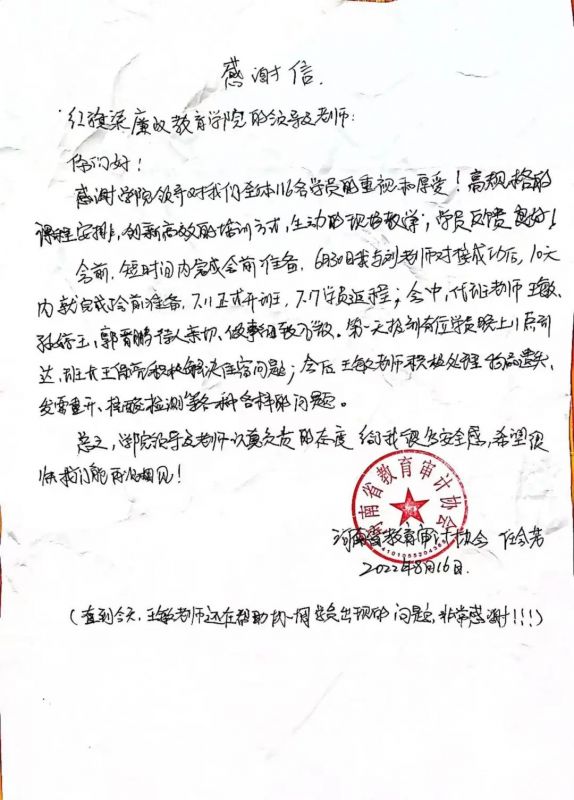 感谢信.
红旗渠廉政教育学院的领导及老师:
你们好!
感谢学院领导对我们全体116名学员的重视和厚爱!高规格的
课程安排,创新高效的培训方式,生动的现场教学,学员反馈良好!
会前,短时间内完成会前准备,6月30日我与刘老师对接成功后,10天
内就完成了会前准备,7.11正式开班,7.17学员返程;会中,代班老师王敏、
孙 王、郭晋鹏待人亲切、做事细致 。第一天报到有位学员晚上11点到
达,班长王 积极解决住宿问题;会后王敏老师积极处理物品遗失、
发票重开、核酸检测等各种各样的问题。
总之,学院领导及老师认真负责的态度给我很多安全感,希望很
快我们能再次相见!
河南省教育审计协会 任会芳
2022年8月16日.
河南省教育审计协会
(直到今天,王敏老师还在帮助协调学员出现的问题,非常感谢!!!)